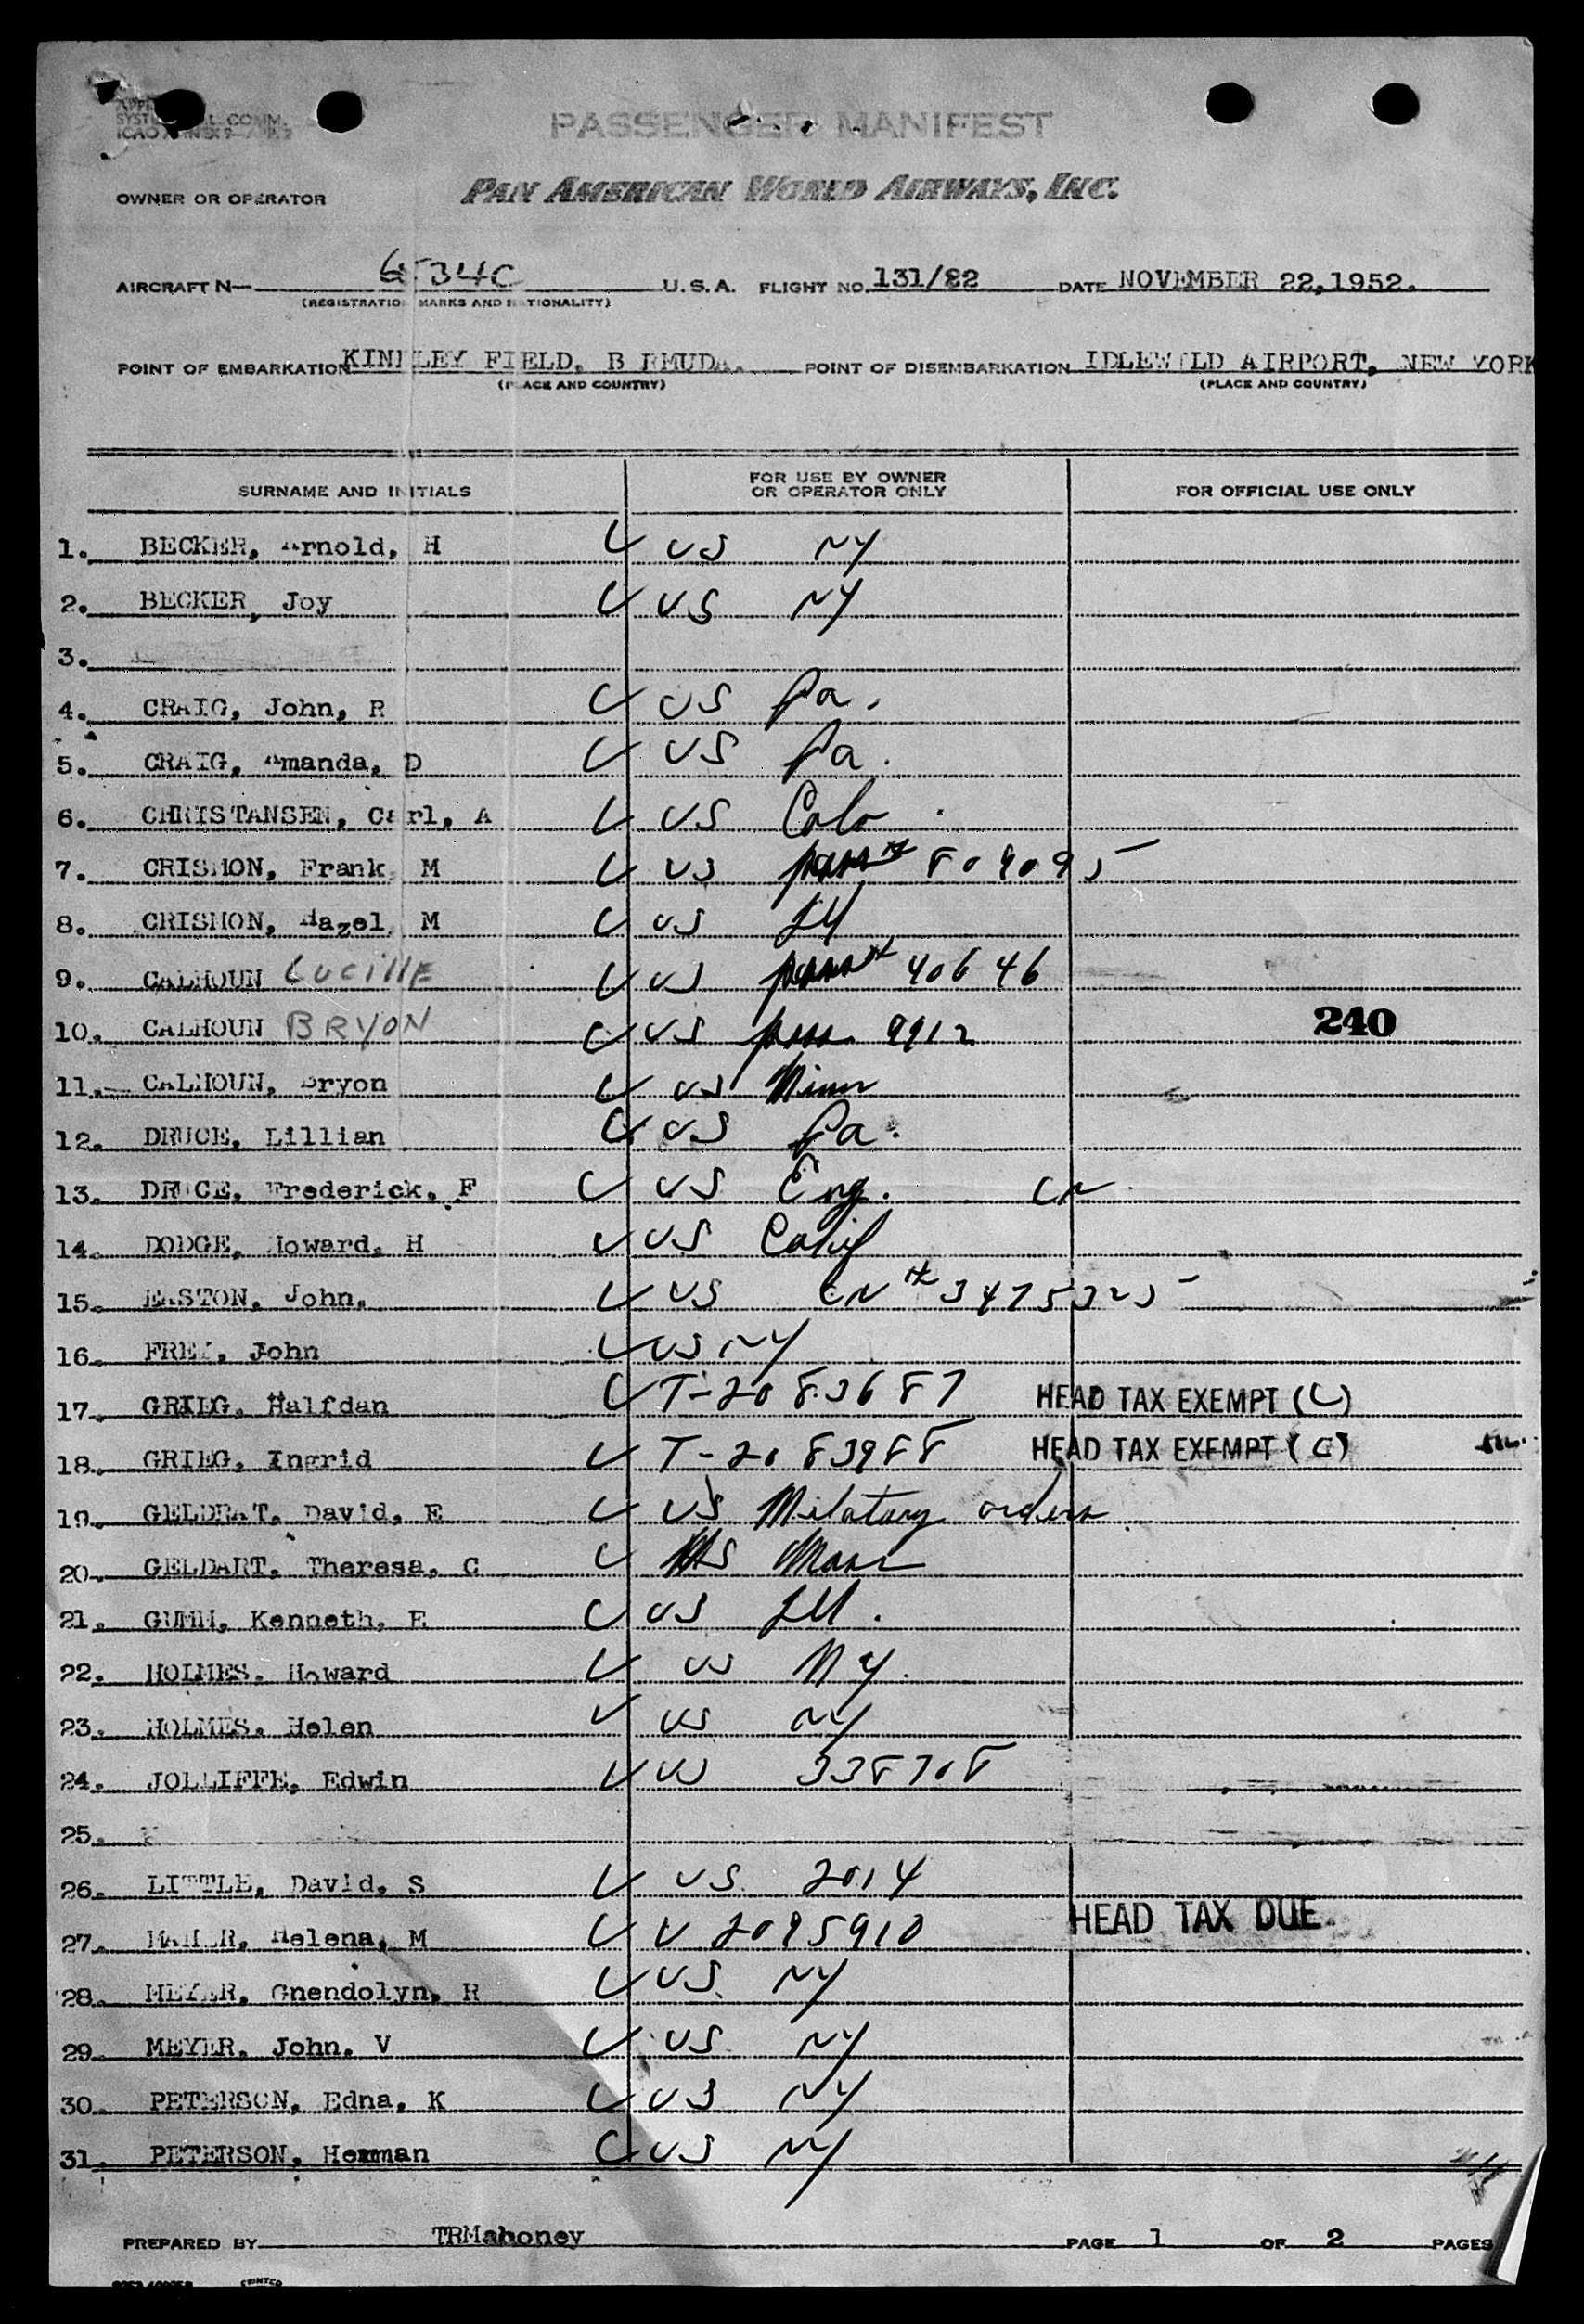 PASSENGER MANIFEST
OWNER OR OPERATOR PAN AMERICAN WORLD AIRWAYS, INC.
AIRCRAFT N— 6534C U.S.A. FLIGHT NO. 131/82 DATE NOVEMBER 22,1952.
(REGISTRATION MARKS AND NATIONALITY)
POINT OF EMBARKATION KINDLEY FIELD, BERMUDA. POINT OF DISEMBARKATION IDLEWILD AIRPORT, NEW YORK
(PLACE AND COUNTRY) (PLACE AND COUNTRY)
SURNAME AND INITIALS FOR USE BY OWNER OR OPERATOR ONLY FOR OFFICIAL USE ONLY
1. BECKER, Arnold, H US NY
2. BECKER, Joy US NY
3.
4. CRAIG, John, R US Pa.
5. CRAIG, Amanda, D US Pa.
6. CHRISTANSEN, Carl, A US Colo
7. CRISMON, Frank, M US pass # 809095
8. CRISMON, Hazel, M US Ill
9. CALHOUN LUCILLE US pass # 40646
10. CALHOUN BRYON US pass 9912 240
11. CALHOUN, Bryon US Minn
12. DRUCE, Lillian US Pa.
13. DRUCE, Frederick, F US Eng. CN
14. DODGE, Howard, H US Calif
15. EASTON, John, US CN # 3475325
16. John US NY
17. GRIEG, Halfdan T-2083687 HEAD TAX EXEMPT (C)
18. GRIEG, Ingrid T-2083988 HEAD TAX EXEMPT (C)
19. GELDEAT, David, E US Milatary orders
20. GELDART, Theresa, C US Mass
21. GUMM, Kenneth, E US Ill.
22. HOLMES, Howard US NY.
23. HOLMES, Helen US NY
24. JOLLIFFE, Edwin US 338708
25.
26. LITTLE, David, S US 2014
27. Helena, M V 2095910 HEAD TAX DUE
28. MEYER, Gnendolyn, R US NY
29. MEYER, John, V US NY
30. PETERSON, Edna, K US NY
31. PETERSON, Hemman US NY
PREPARED BY TRMahoney PAGE 1 OF 2 PAGES